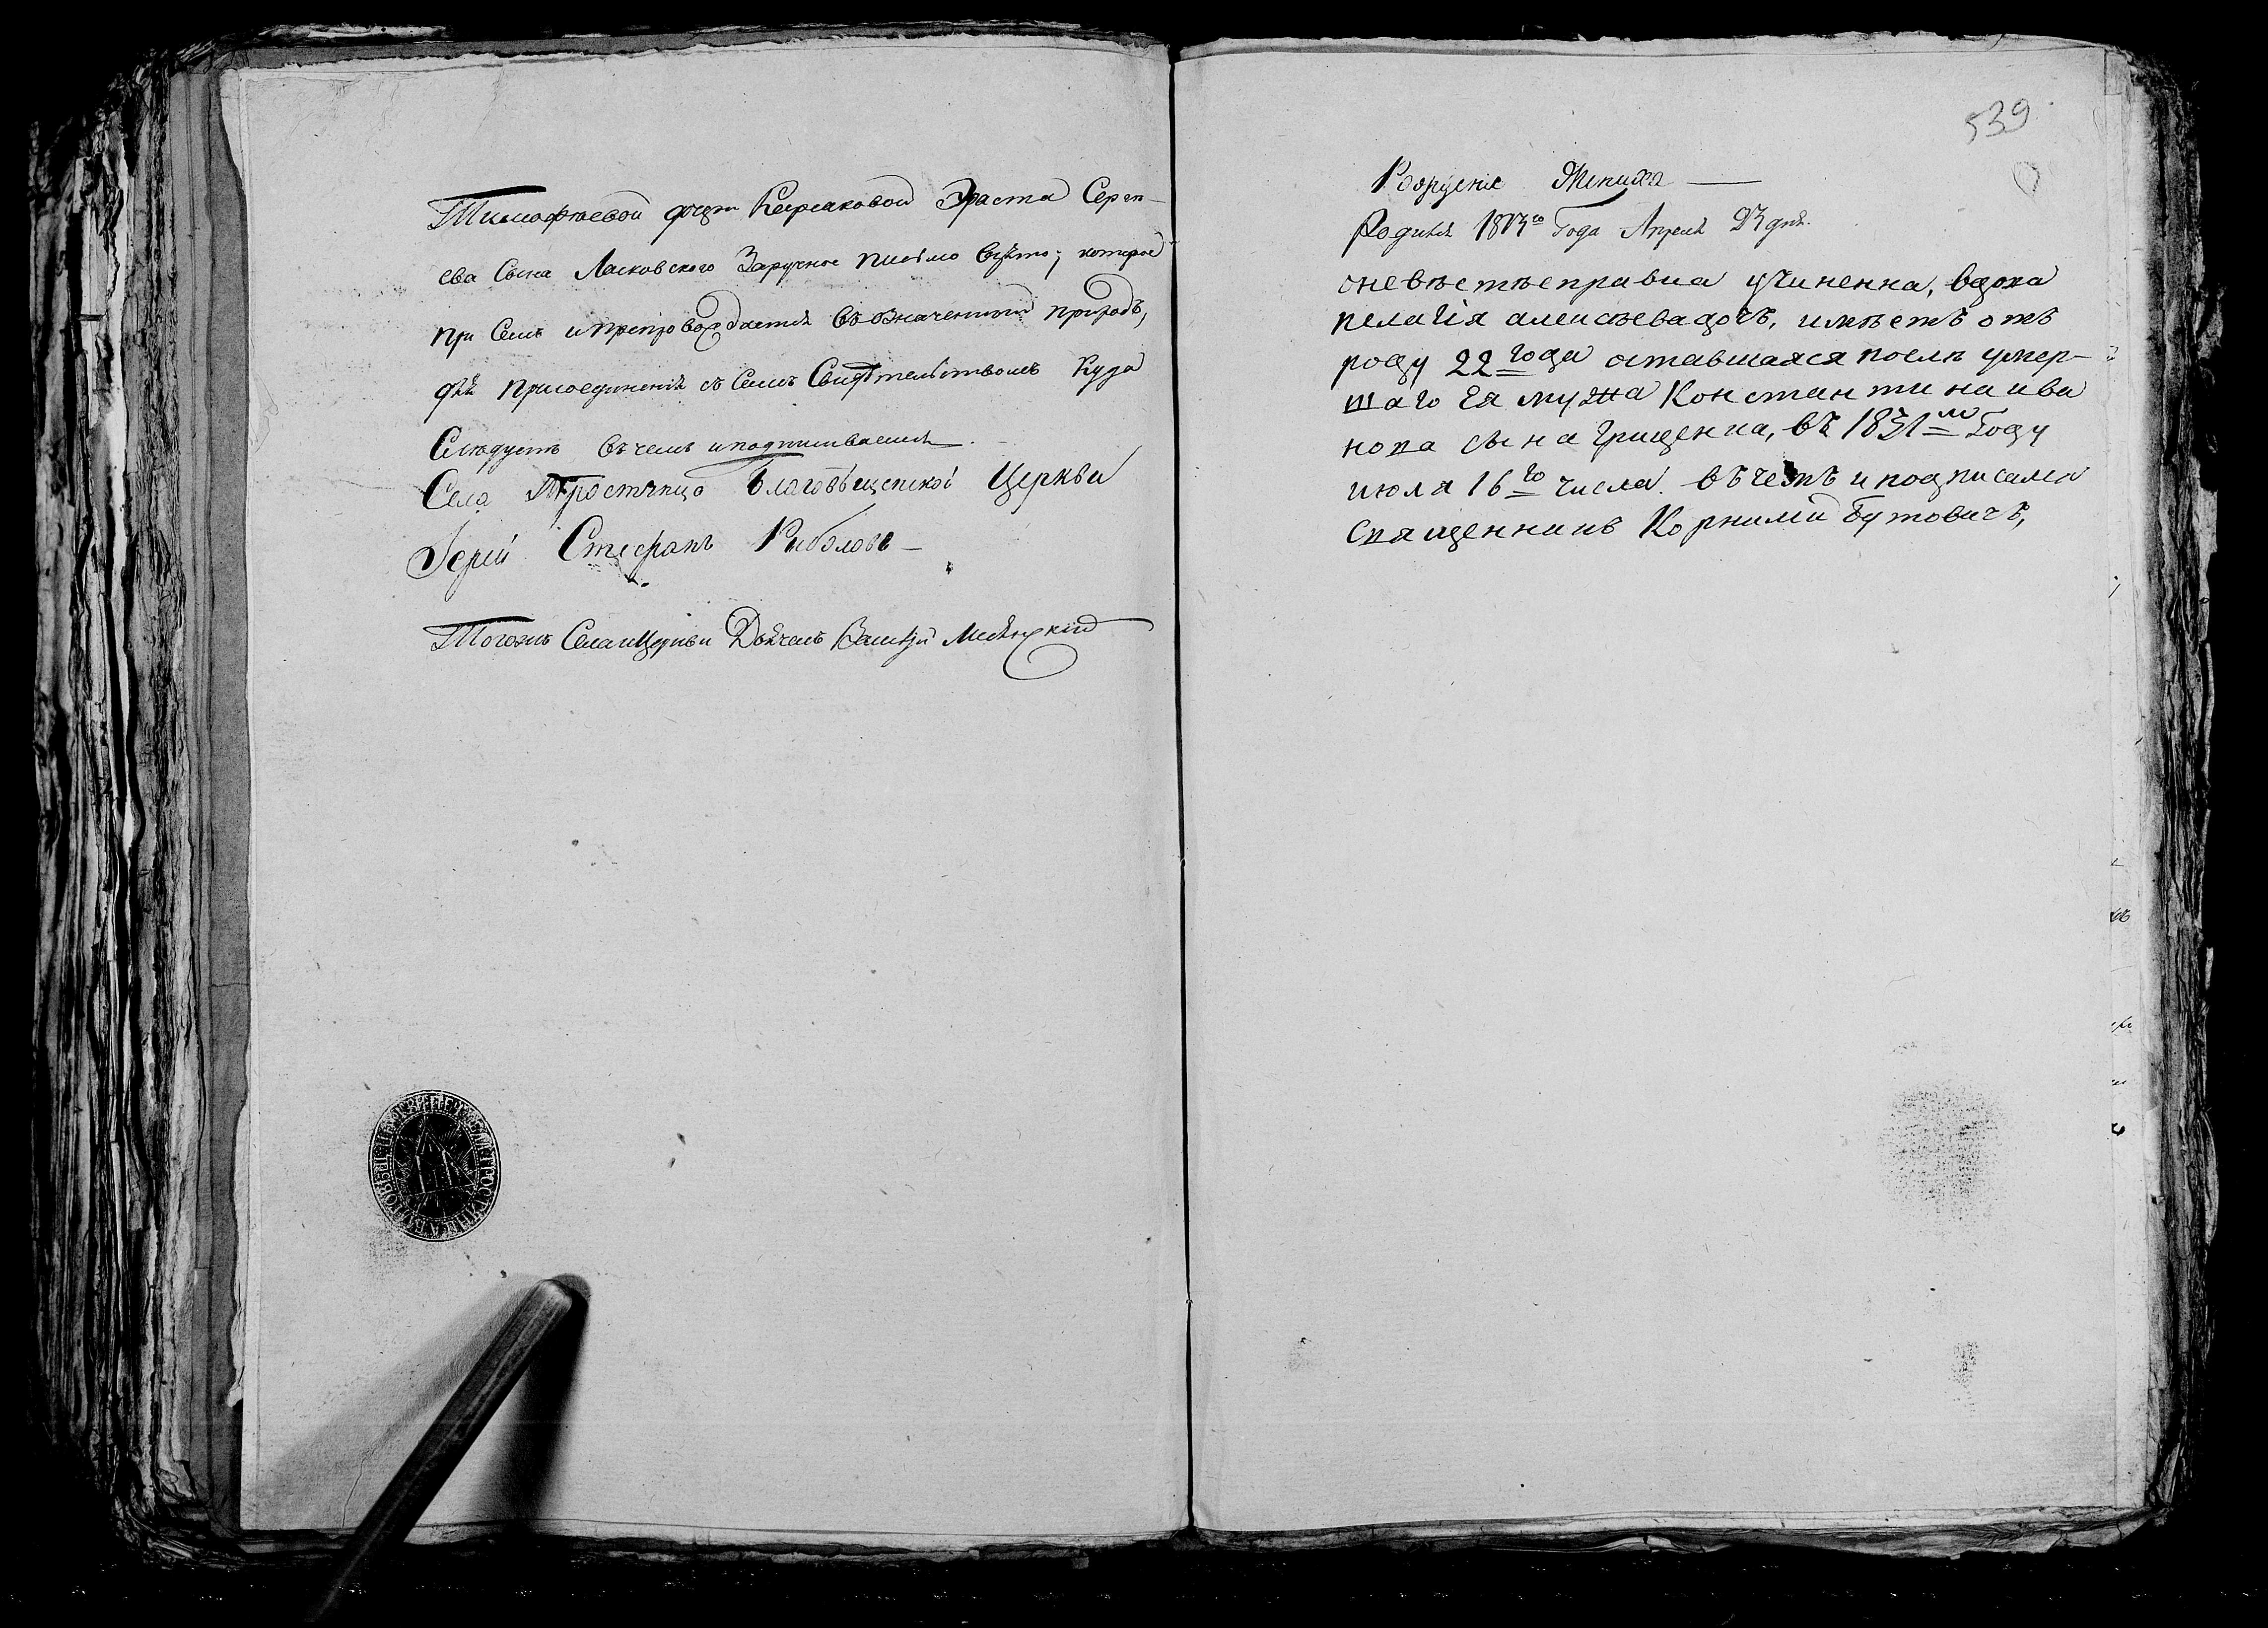 Тимофѣевой дщери Корсаковой Эраста Сергѣ-
ева Сына Лясковского Заручное письмо взято; которое
при Семъ и препровождается въ означенный приходъ,
для присоединенія съ Симъ Свидѣтельствомъ Куда
Слѣдуетъ въ чемъ и подписываемся.
Села Тростянца Благовѣщенской Церкви
Іерей Стефанъ
Тогожъ Села и Церкви Дьячокъ Василій
539
Жениха
Родился 1813го Года Апреля 23 дня.
оневѣстѣ справка учиненна, вдова
пелагія алексѣева дочъ, имѣетъ отъ
роду 22 года оставшаяся послѣ умер-
шаго Ея мужа Константина ива
нова сына Грищенка, въ 1831мъ Году
июля 16го числа. въ чемъ и подписался
Священникъ Корнилій Бутовичъ,